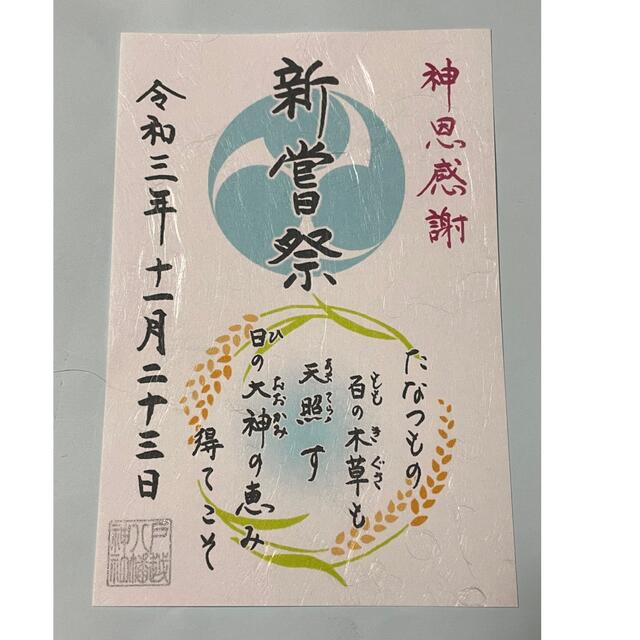 神恩感謝
新嘗祭
令和三年十一月二十三日
たなつもの
百の木草も
もも きぐさ
天照す
あま てら
日の大神の恵み
ひ おおかみ
得てこそ
戸越
八幡
神社